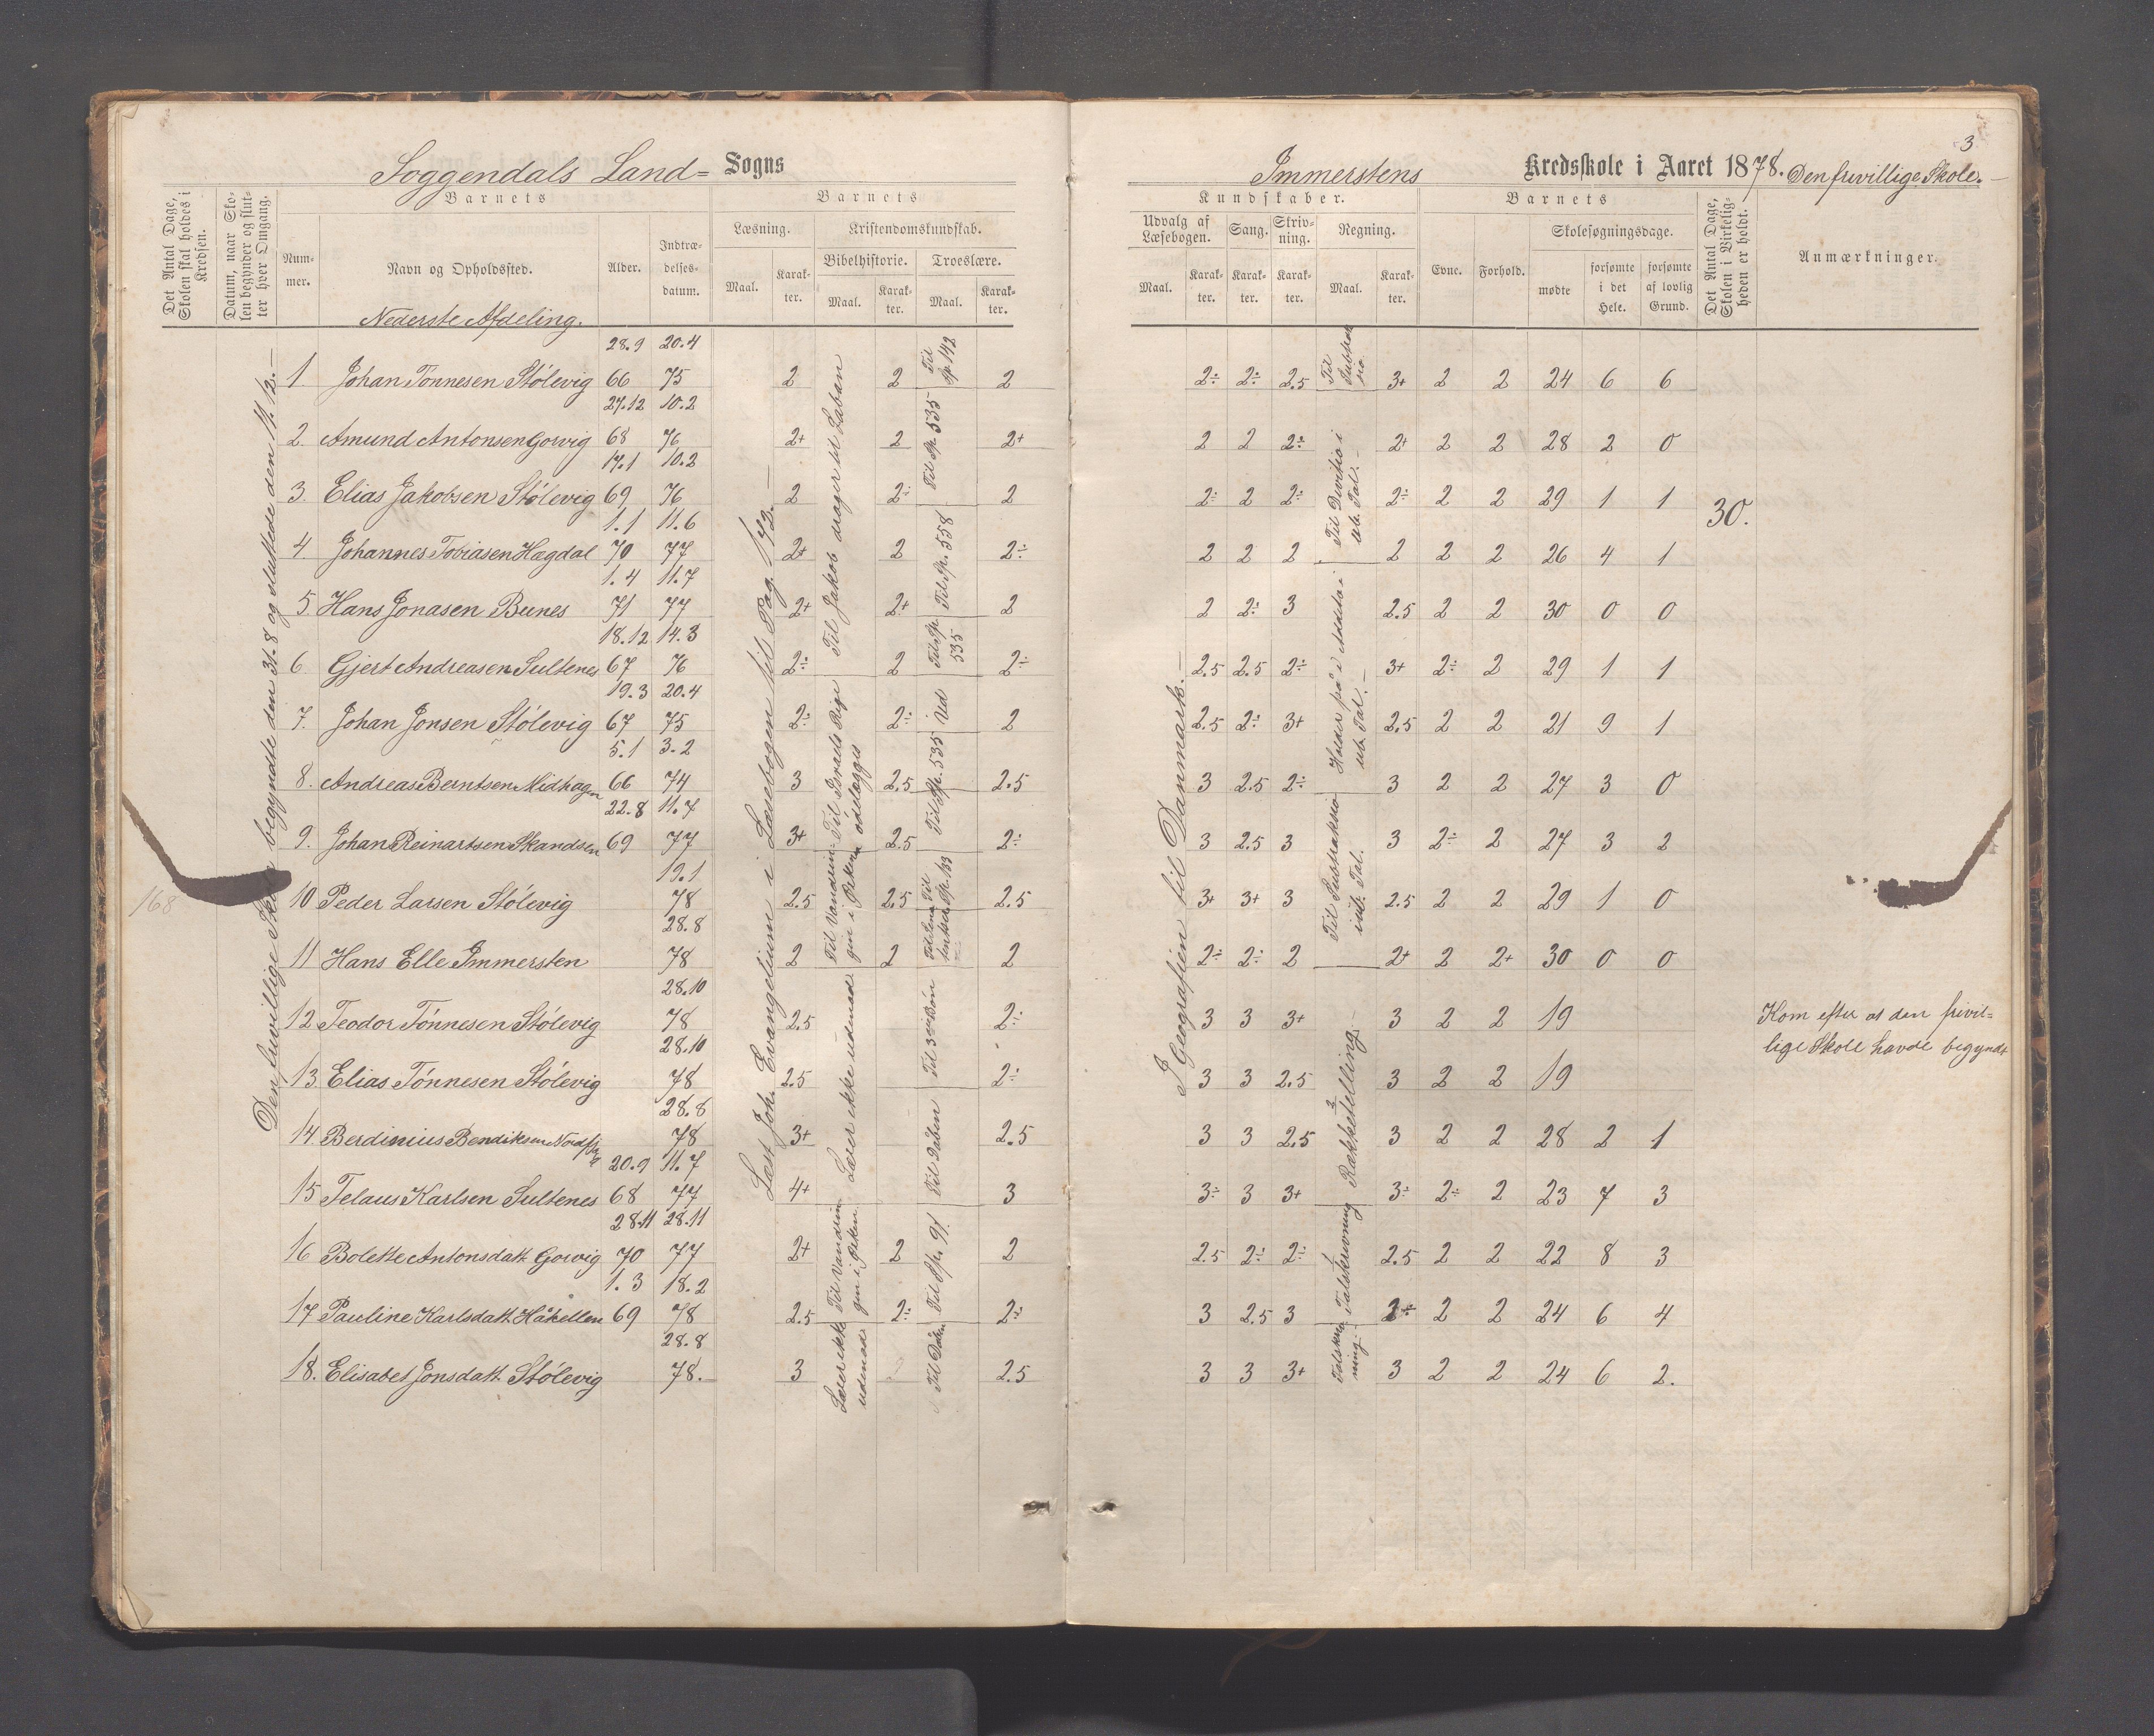 Soggendals Land= Sogns
Det Antal Dage, Skolen skal holdes i Kredsen.
Datum, naar Skolen begynder og slutter hver Omgang.
Barnets
Nummer.
Navn og Opholdssted.
Alder.
Indtrædelsesdatum.
Barnets
Læsning.
Maal.
Karakter.
Kristendomskundskab.
Bibelhistorie.
Maal.
Karakter.
Troeslære.
Maal.
Karakter.
Nederste Afdeling.
Den frivillige Skole begyndte den 31.8 og sluttede den 11.12.—
Læst Joh. Evangelium i Læsebogen til Pag. 173.—
Til Jakob drager til Laban
Til Israels Rige ödelægges
Til Vandringen i Örkenen
Lærer ikke udenad
Til Vandringen i Örken.
Lærer ikke udenad
Til Sp. 142
Til Sp. 535
Til Sp. 558
Til Sp. 535
Ud
Til Sp. 535
Til Sp. 183
Til 3die bön
Til Dåben
Til Sp. 91.
Til Dåben
28.9 20.4
1 Johan Tönnesen Stölevig 66 75 2 2 2
27.12 10.2
2. Amund Antonsen Gorvig 68 76 2+ 2 2+
17.1 10.2
3. Elias Jakobsen Stölevig 69 76 2 2÷ 2
1.1 11.6
4 Johannes Tobiasen Hægdal 70 77 2+ 2 2÷
1.4 11.7
5. Hans Jonasen Bunes 71 77 2+ 2+ 2
18.12 14.3
6 Gjert Andreasen Sultenes 67 76 2÷ 2 2÷
19.3 20.4
7. Johan Jonsen Stölevig 67 75 2÷ 2÷ 2
5.1 3.2
8. Andreas Berntsen Midhagn 66 74 3 2.5 2.5
22.8 11.7
9. Johan Reinartsen Skandsen 69 77 3+ 2.5 2÷
19.1
168
10 Peder Larsen Stölevig 78 2.5 2.5 2.5
28.8
11 Hans Elle Immersten 78 2 2 2
28.10
12 Teodor Tönnesen Stölevig 78 2.5 2÷
28.10
13 Elias Tönnesen Stölevig 78 2.5 2÷
28.8
14. Berdinius Bendiksen 78 3+ 2.5
20.9 11.7
15 Telaus Karlsen Sultenes 68 77 4+ 3
28.11 28.11
16 Bolette Antonsdatt. Gorvig 70 77 2+ 2 2
1.3 18.2
17 Pauline Karlsdatt. Håhellen 69 78 2.5 2÷ 2÷
28.8
18. Elisabet Jonsdatt. Stölevig 78. 3 2.5
3
Immerstens Kredsskole i Aaret 1878. Den frivillige Skole.—
Kundskaber.
Udvalg af Læsebogen.
Maal.
Karakter.
Sang.
Karakter.
Skrivning.
Karakter.
Regning.
Maal.
Karakter.
Barnets
Evne.
Forhold.
Skolesøgningsdage.
mødte
forsømte i det Hele.
forsømte af lovlig Grund.
Det Antal Dage, Skolen i Virkeligheden er holdt.
Anmærkninger.
I Geografien til Danmark.—
Til Divitio i ub. Tal.—
Holder på i Additio i ub. Tal.—
Til Sustraksio i ub. Tal.
Rækketelling.—
Talskrivning
Talskrivning.—
2÷ 2÷ 2.5 3+ 2 2 24 6 6
2 2 2÷ 2+ 2 2 28 2 0
2÷ 2 2÷ 2÷ 2 2 29 1 1
30.
2 2 2 2 2 2 26 4 1
2 2÷ 3 2.5 2 2 30 0 0
2.5 2.5 2÷ 3+ 2÷ 2 29 1 1
2.5 2÷ 3+ 2.5 2 2 21 9 1
3 2.5 2÷ 3 2 2 27 3 0
3 2.5 3 3 2÷ 2 27 3 2
3+ 3+ 3 2.5 2 2 29 1 0
2÷ 2÷ 2 2+ 2 2+ 30 0 0
3 3 3+ 3 2 2 19 Kom efter at den frivil=
lige Skole havde begyndt
3 3 2.5 3 2 2 19
3 3 2.5 3 2 2 28 2 1
3÷ 3 3+ 3÷ 2÷ 2 23 7 3
2.5 2÷ 2÷ 2.5 2 2 22 8 3
3 2.5 3 2÷ 2 2 24 6 4
3 3 3+ 3 2 2 24 6 2.